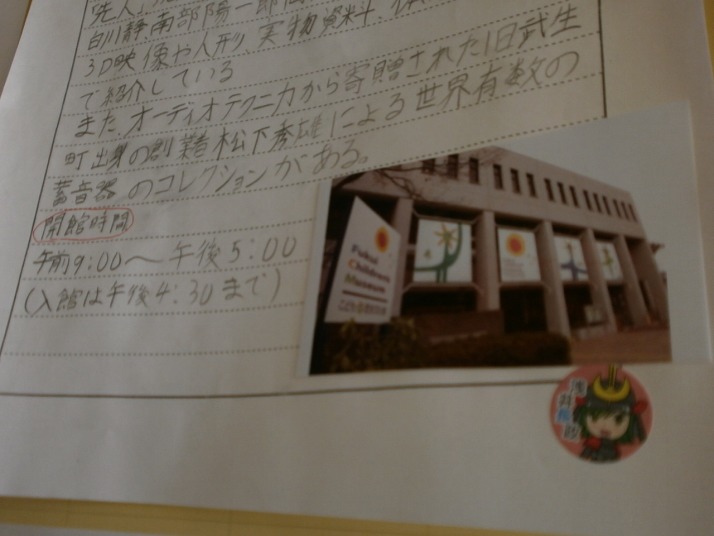 「先人」
白川静南部陽一郎
3D映像や人形、実物資料、
で紹介している
また、オーディオテクニカから寄贈された旧武生
町出身の創業者松下秀雄による世界有数の
蓄音器のコレクションがある。
開館時間
午前9:00～午後5:00
(入館は午後4:30まで)
Fukui
Children's
Museum
浅井長政